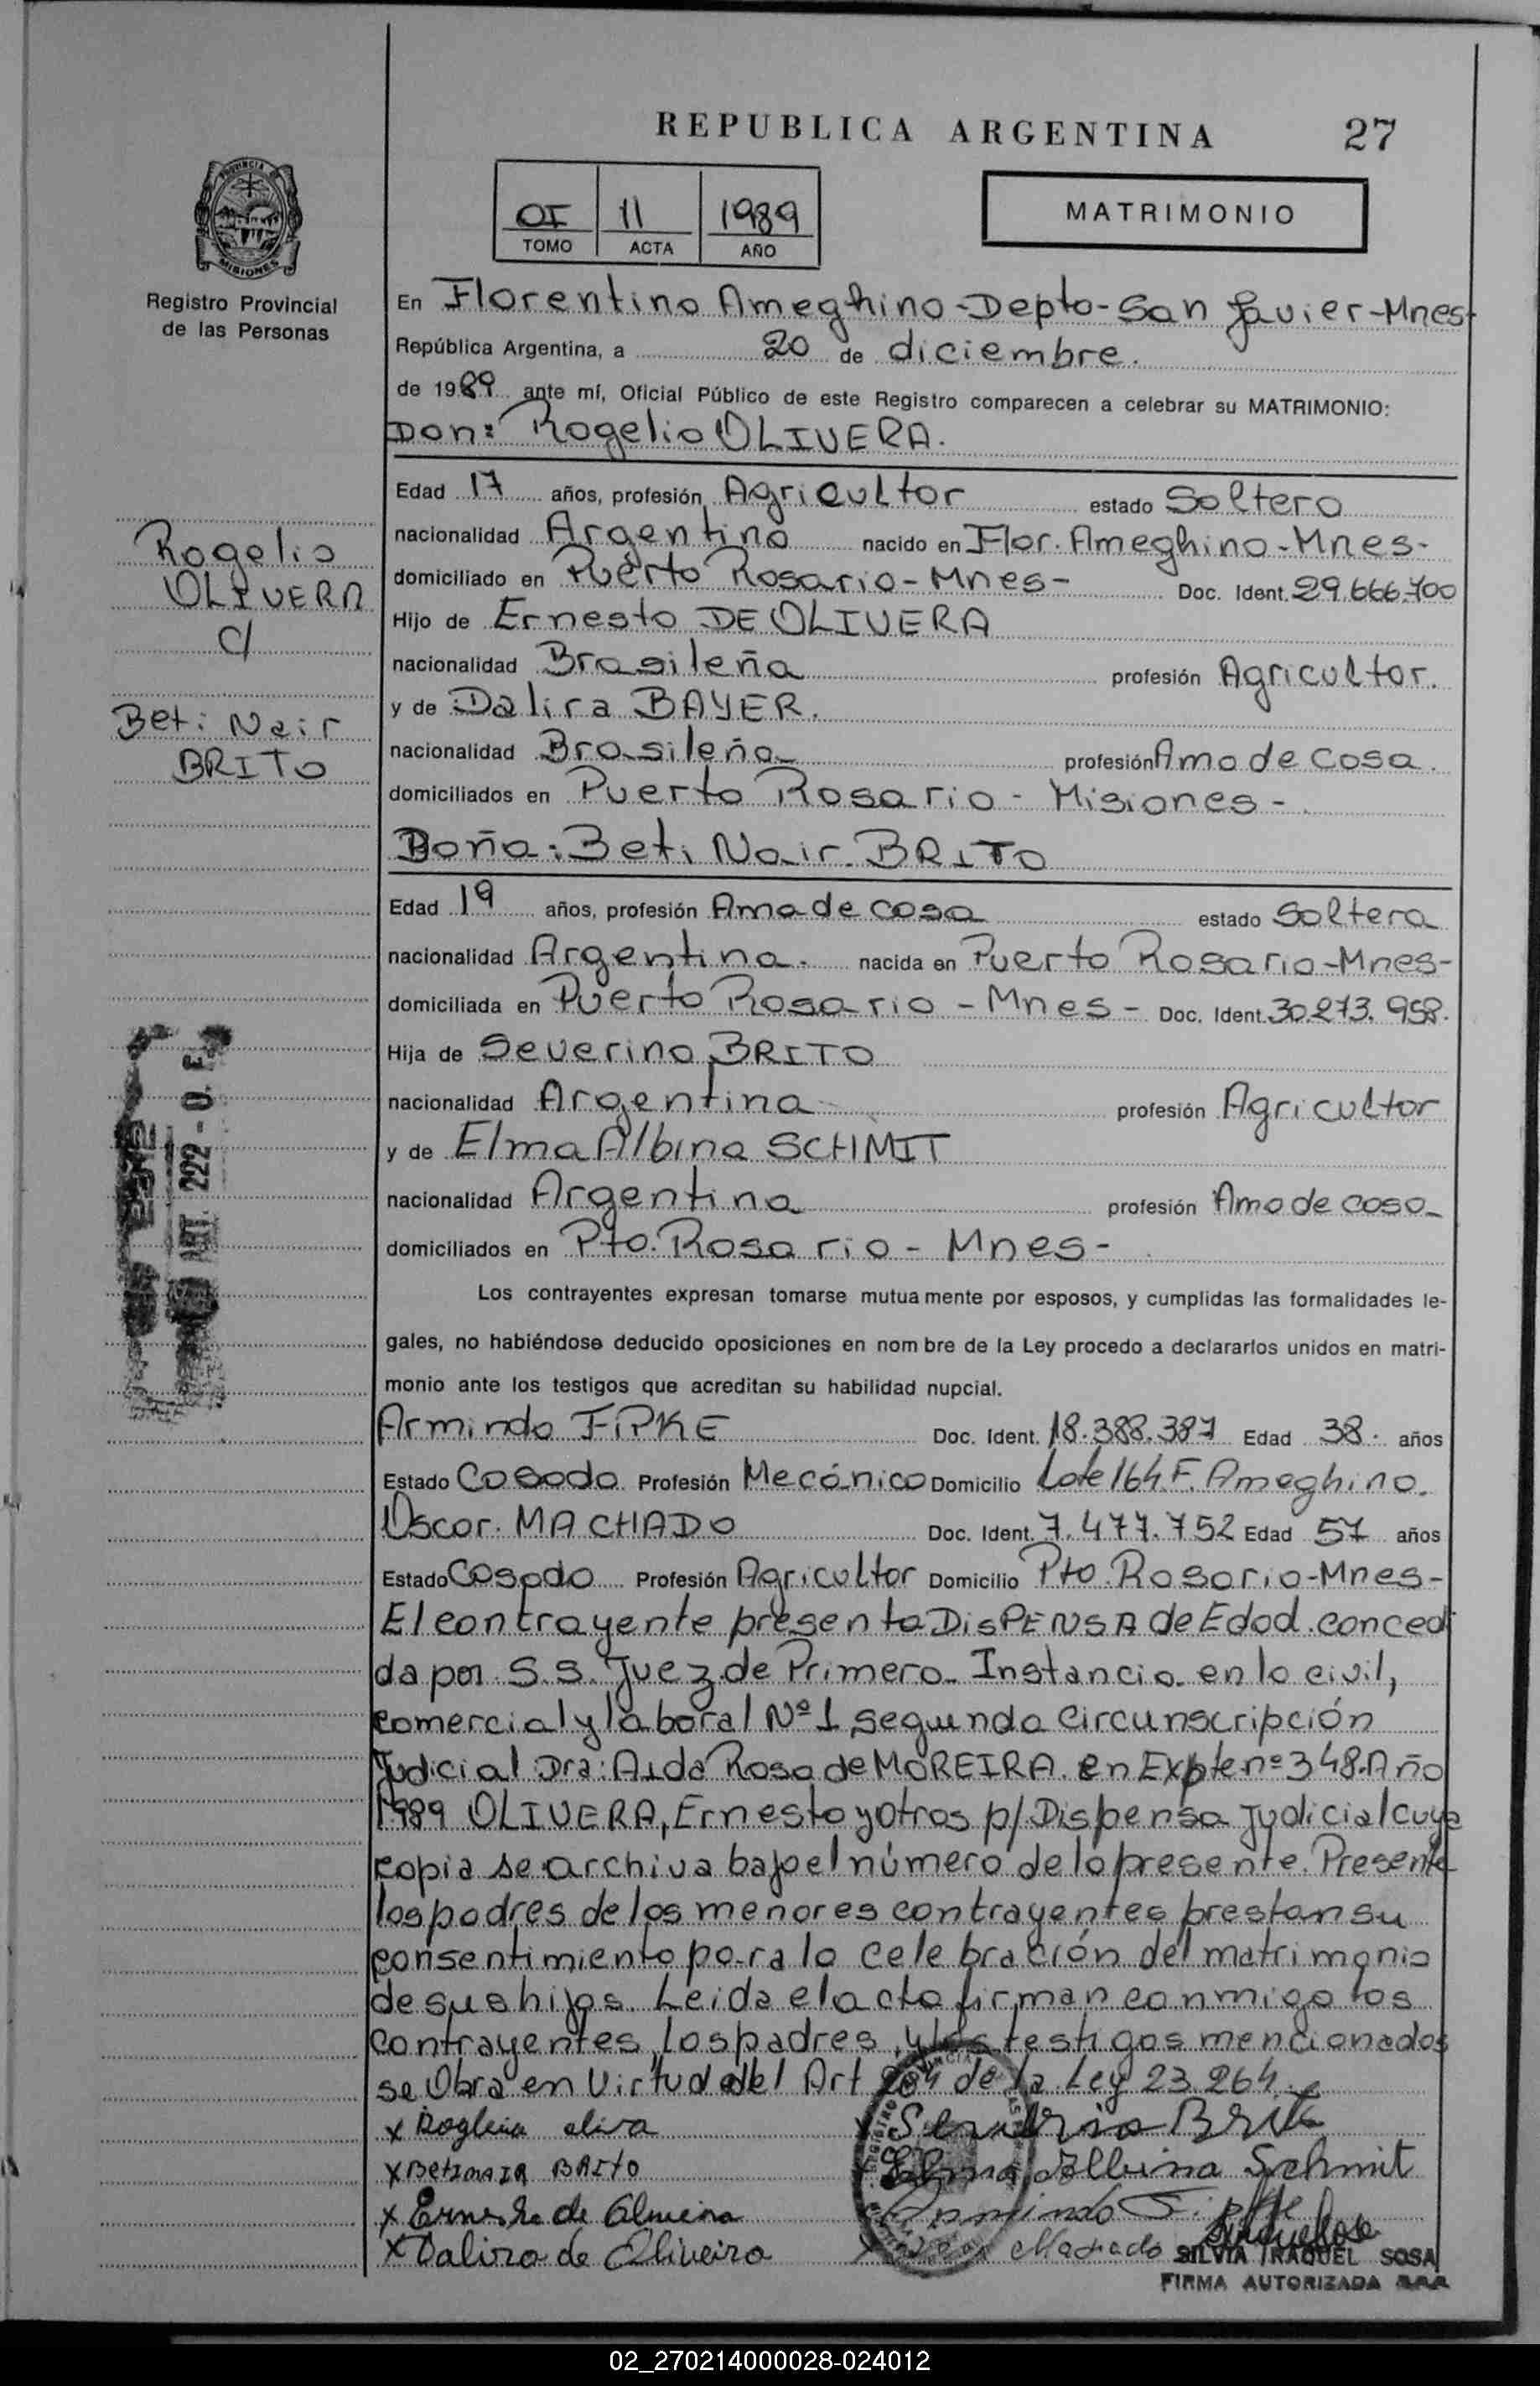 REPUBLICA ARGENTINA
27
OI 11 1989
TOMO ACTA AÑO
MATRIMONIO
PROVINCIA DE
MISIONES
Registro Provincial
de las Personas
En Florentino Ameghino-Depto-San Javier-Mnes-
República Argentina, a 20 de diciembre.
de 1989 ante mí, Oficial Público de este Registro comparecen a celebrar su MATRIMONIO:
Don: Rogelio OLIVERA.
Edad 17 años, profesión Agricultor estado Soltero
nacionalidad Argentino nacido en Flor. Ameghino-Mnes-
domiciliado en Puerto Rosario-Mnes- Doc. Ident. 29.666.700
Hijo de Ernesto DE OLIVERA
nacionalidad Brasileña profesión Agricultor.
y de Dalira BAYER.
nacionalidad Brasileña profesión Ama de casa.
domiciliados en Puerto Rosario - Misiones -
Doña: Beti Nair BRITO
Edad 19 años, profesión Ama de casa estado Soltera
nacionalidad Argentina. nacida en Puerto Rosario-Mnes-
domiciliada en Puerto Rosario - Mnes - Doc. Ident. 30.273.958.
Hija de Severino BRITO
nacionalidad Argentina profesión Agricultor
y de Elma Albina SCHMIT
nacionalidad Argentina profesión Ama de casa
domiciliados en Pto. Rosario - Mnes -
Los contrayentes expresan tomarse mutuamente por esposos, y cumplidas las formalidades le-
gales, no habiéndose deducido oposiciones en nombre de la Ley procedo a declararlos unidos en matri-
monio ante los testigos que acreditan su habilidad nupcial.
Armindo FIPKE Doc. Ident. 18.388.387 Edad 38. años
Estado Casado Profesión Mecánico Domicilio Lote 164 F. Ameghino.
Oscar MACHADO Doc. Ident. 7.477.752 Edad 57 años
Estado Casado Profesión Agricultor Domicilio Pto. Rosario-Mnes-
El contrayente presenta DisPENSA de Edad concedi
da por S.S. Juez de Primera Instancia en lo civil,
comercial y laboral Nº 1 segunda Circunscripción
Judicial Dra: Aida Rosa de MOREIRA en Expte nº 348.Año
1989 OLIVERA, Ernesto y otros p/ Dispensa Judicial cuya
copia se archiva bajo el número de la presente. Presente
los padres de los menores contrayentes prestan su
consentimiento para la celebración del matrimonio
de sus hijos. Leida el acta firman conmigo los
contrayentes, los padres, y los testigos mencionados
se Obra en virtud del Art 204 de la Ley 23.264.
Rogelio
OLIVERA
C/
Beti Nair
BRITO
ART. 222 - O.
x
x Severino Brito
x Betinair BRito
x Elma Albina Schmit
x Ernesto de
Armindo Fipke
x Dalira de Oliveira
x Machado
SILVIA RAQUEL SOSA
FIRMA AUTORIZADA
02_270214000028-024012